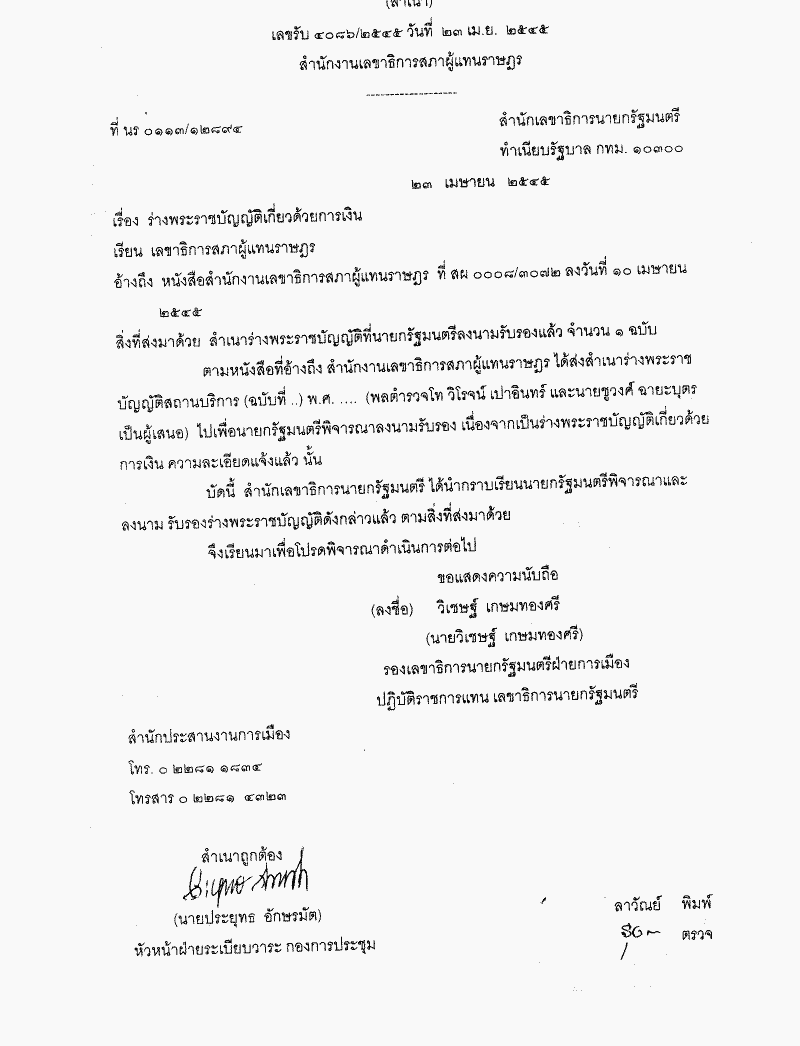 (สำเนา)
เลขรับ ๔๐๘๖/๒๕๔๕ วันที่ ๒๓ เม.ย. ๒๕๔๕
สำนักงานเลขาธิการสภาผู้แทนราษฎร
-------------------
ที่ นร ๐๑๑๓/๑๒๘๙๔
สำนักเลขาธิการนายกรัฐมนตรี
ทำเนียบรัฐบาล กทม. ๑๐๓๐๐
๒๓ เมษายน ๒๕๔๕
เรื่อง ร่างพระราชบัญญัติเกี่ยวด้วยการเงิน
เรียน เลขาธิการสภาผู้แทนราษฎร
อ้างถึง หนังสือสำนักงานเลขาธิการสภาผู้แทนราษฎร ที่ สผ ๐๐๐๘/๓๐๗๒ ลงวันที่ ๑๐ เมษายน
๒๕๔๕
สิ่งที่ส่งมาด้วย สำเนาร่างพระราชบัญญัติที่นายกรัฐมนตรีลงนามรับรองแล้ว จำนวน ๑ ฉบับ
ตามหนังสือที่อ้างถึง สำนักงานเลขาธิการสภาผู้แทนราษฎร ได้ส่งสำเนาร่างพระราช
บัญญัติสถานบริการ (ฉบับที่ ..) พ.ศ. .... (พลตำรวจโท วิโรจน์ เปาอินทร์ และนายชูวงศ์ ฉายะบุตร
เป็นผู้เสนอ) ไปเพื่อนายกรัฐมนตรีพิจารณาลงนามรับรอง เนื่องจากเป็นร่างพระราชบัญญัติเกี่ยวด้วย
การเงิน ความละเอียดแจ้งแล้ว นั้น
บัดนี้ สำนักเลขาธิการนายกรัฐมนตรี ได้นำกราบเรียนนายกรัฐมนตรีพิจารณาและ
ลงนาม รับรองร่างพระราชบัญญัติดังกล่าวแล้ว ตามสิ่งที่ส่งมาด้วย
จึงเรียนมาเพื่อโปรดพิจารณาดำเนินการต่อไป
ขอแสดงความนับถือ
(ลงชื่อ) วิเชษฐ์ เกษมทองศรี
(นายวิเชษฐ์ เกษมทองศรี)
รองเลขาธิการนายกรัฐมนตรีฝ่ายการเมือง
ปฏิบัติราชการแทน เลขาธิการนายกรัฐมนตรี
สำนักประสานงานการเมือง
โทร. ๐ ๒๒๘๑ ๑๘๓๔
โทรสาร ๐ ๒๒๘๑ ๔๓๒๓
สำเนาถูกต้อง
(นายประยุทธ อักษรมัต)
หัวหน้าฝ่ายระเบียบวาระ กองการประชุม
ลาวัณย์ พิมพ์
ตรวจ